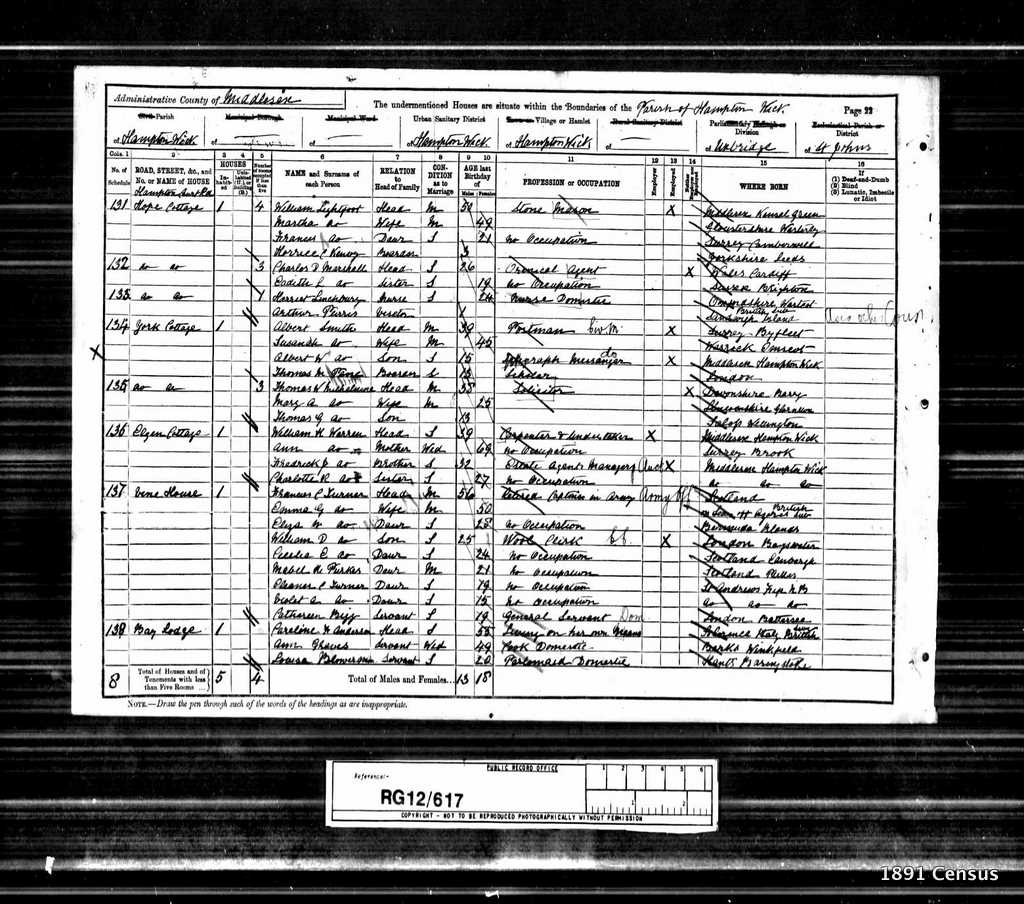 Administrative County of Middlesex
The undermentioned Houses are situate within the Boundaries of the Parish of Hampton Wick
Page 22
Civil Parish
Municipal Borough
Municipal Ward
Urban Sanitary District
Town or Village or Hamlet
Rural Sanitary District
Parliamentary Borough or Division
Ecclesiastical Parish or District
of Hampton Wick of of of Hampton Wick of Hampton Wick of of Uxbridge of St Johns
Cols. 1 2 3 4 5 6 7 8 9 10 11 12 13 14 15 16
No. of Schedule
ROAD, STREET, &c., and No. or NAME of HOUSE
Hampton Court Rd
HOUSES
NAME and Surname of each Person
RELATION to Head of Family
CONDITION as to Marriage
AGE last Birthday of
Males Females
PROFESSION or OCCUPATION
Employer
Employed
WHERE BORN
If
(1) Deaf-and-Dumb
(2) Blind
(3) Lunatic, Imbecile or Idiot
131 Hope Cottage 1 4 William Lightfoot Head M 50 Stone Mason X Middlesex Kensal Green
Martha do Wife M 49 Gloucestershire
Frances do Daur S 21 No Occupation Surrey Camberwell
Boarder 3 Yorkshire Leeds
132 do do 3 Charles D Marshall Head S 26 Chemical Agent X Wales Cardiff
do Sister S 19 No Occupation Sussex Brighton
133 do do 1 Harriet Nurse S 24 Nurse Domestic
Arthur Visitor X Sandwich Island British Sub
134 York Cottage 1 Albert Smith Head M 39 Postman X Surrey Byfleet
Susannah do Wife M 45 Warwick
Albert W do Son S 15 Telegraph Messenger X Middlesex Hampton Wick
Thomas M Boarder S 13 Scholar London
135 do do 3 Thomas W Head M 38 Solicitor X Devonshire
Mary A do Wife M 25
Thomas G do Son X3 Salop Wellington
136 Cottage 1 William H Warren Head S 39 Carpenter & Undertaker X Middlesex Hampton Wick
Ann do Mother Wid 69 No Occupation Surrey Brook
Fredrick J do Brother S 32 Estate Agents Manager X Middlesex Hampton Wick
Charlotte R do Sister S 27 No Occupation do do do
137 Vine House 1 Francis C Turner Head M 56 Retired Captain in Army Scotland
Emma G do Wife M 50 British
Eliza M do Daur S 28 No Occupation Bermuda Islands
William D do Son S 25 Wool Clerk X London Bayswater
Cecelia E do Daur S 24 No Occupation Scotland
Mabel Daur M 21 No Occupation Scotland
Eleanor C Turner Daur S 19 No Occupation St Andrews Fife N B
Violet A do Daur S 15 No Occupation do do do
Catherine Servant S 19 General Servant Dom London Battersea
138 Bay Lodge 1 Caroline Head S 55 Living on her own Means Florence Italy British
Ann Servant Wid 49 Cook Domestic Berks Winkfield
Louisa Servant S 20 Parlomaid Domestic Hants Basingstoke
8 Total of Houses and of Tenements with less than Five Rooms 5 4 Total of Males and Females... 13 18
NOTE.—Draw the pen through such of the words of the headings as are inappropriate.
PUBLIC RECORD OFFICE
Reference:-
RG12/617
1 2 3 4 5 6
1 2
COPYRIGHT - NOT TO BE REPRODUCED PHOTOGRAPHICALLY WITHOUT PERMISSION
1891 Census